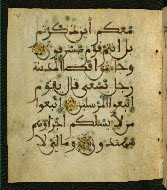 معكم أين ذكرتم
بل أنتم قوم مسرفون
وجاء من أقصا المدينة
رجل يسعى قال يقوم
اتبعوا المرسلين اتبعوا
من لا يسئلكم أجرا وهم
مهتدون وما لي لا